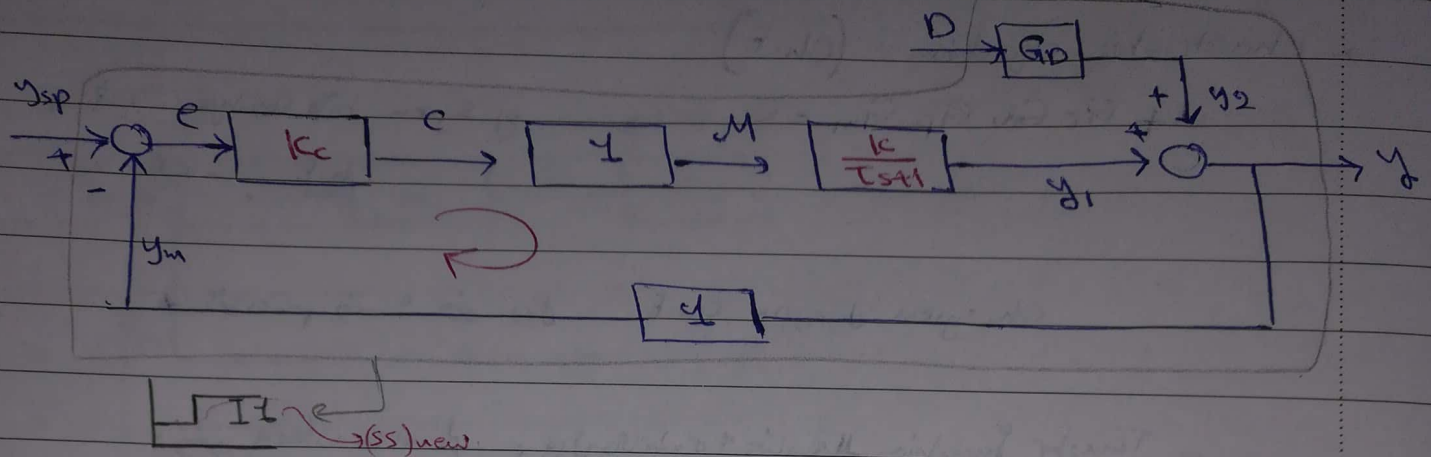 D
G_D
y_sp
e
K_c
c
1
M
K
τs+1
+
y_2
+
+
-
y_1
y
y_m
1
(ss)new